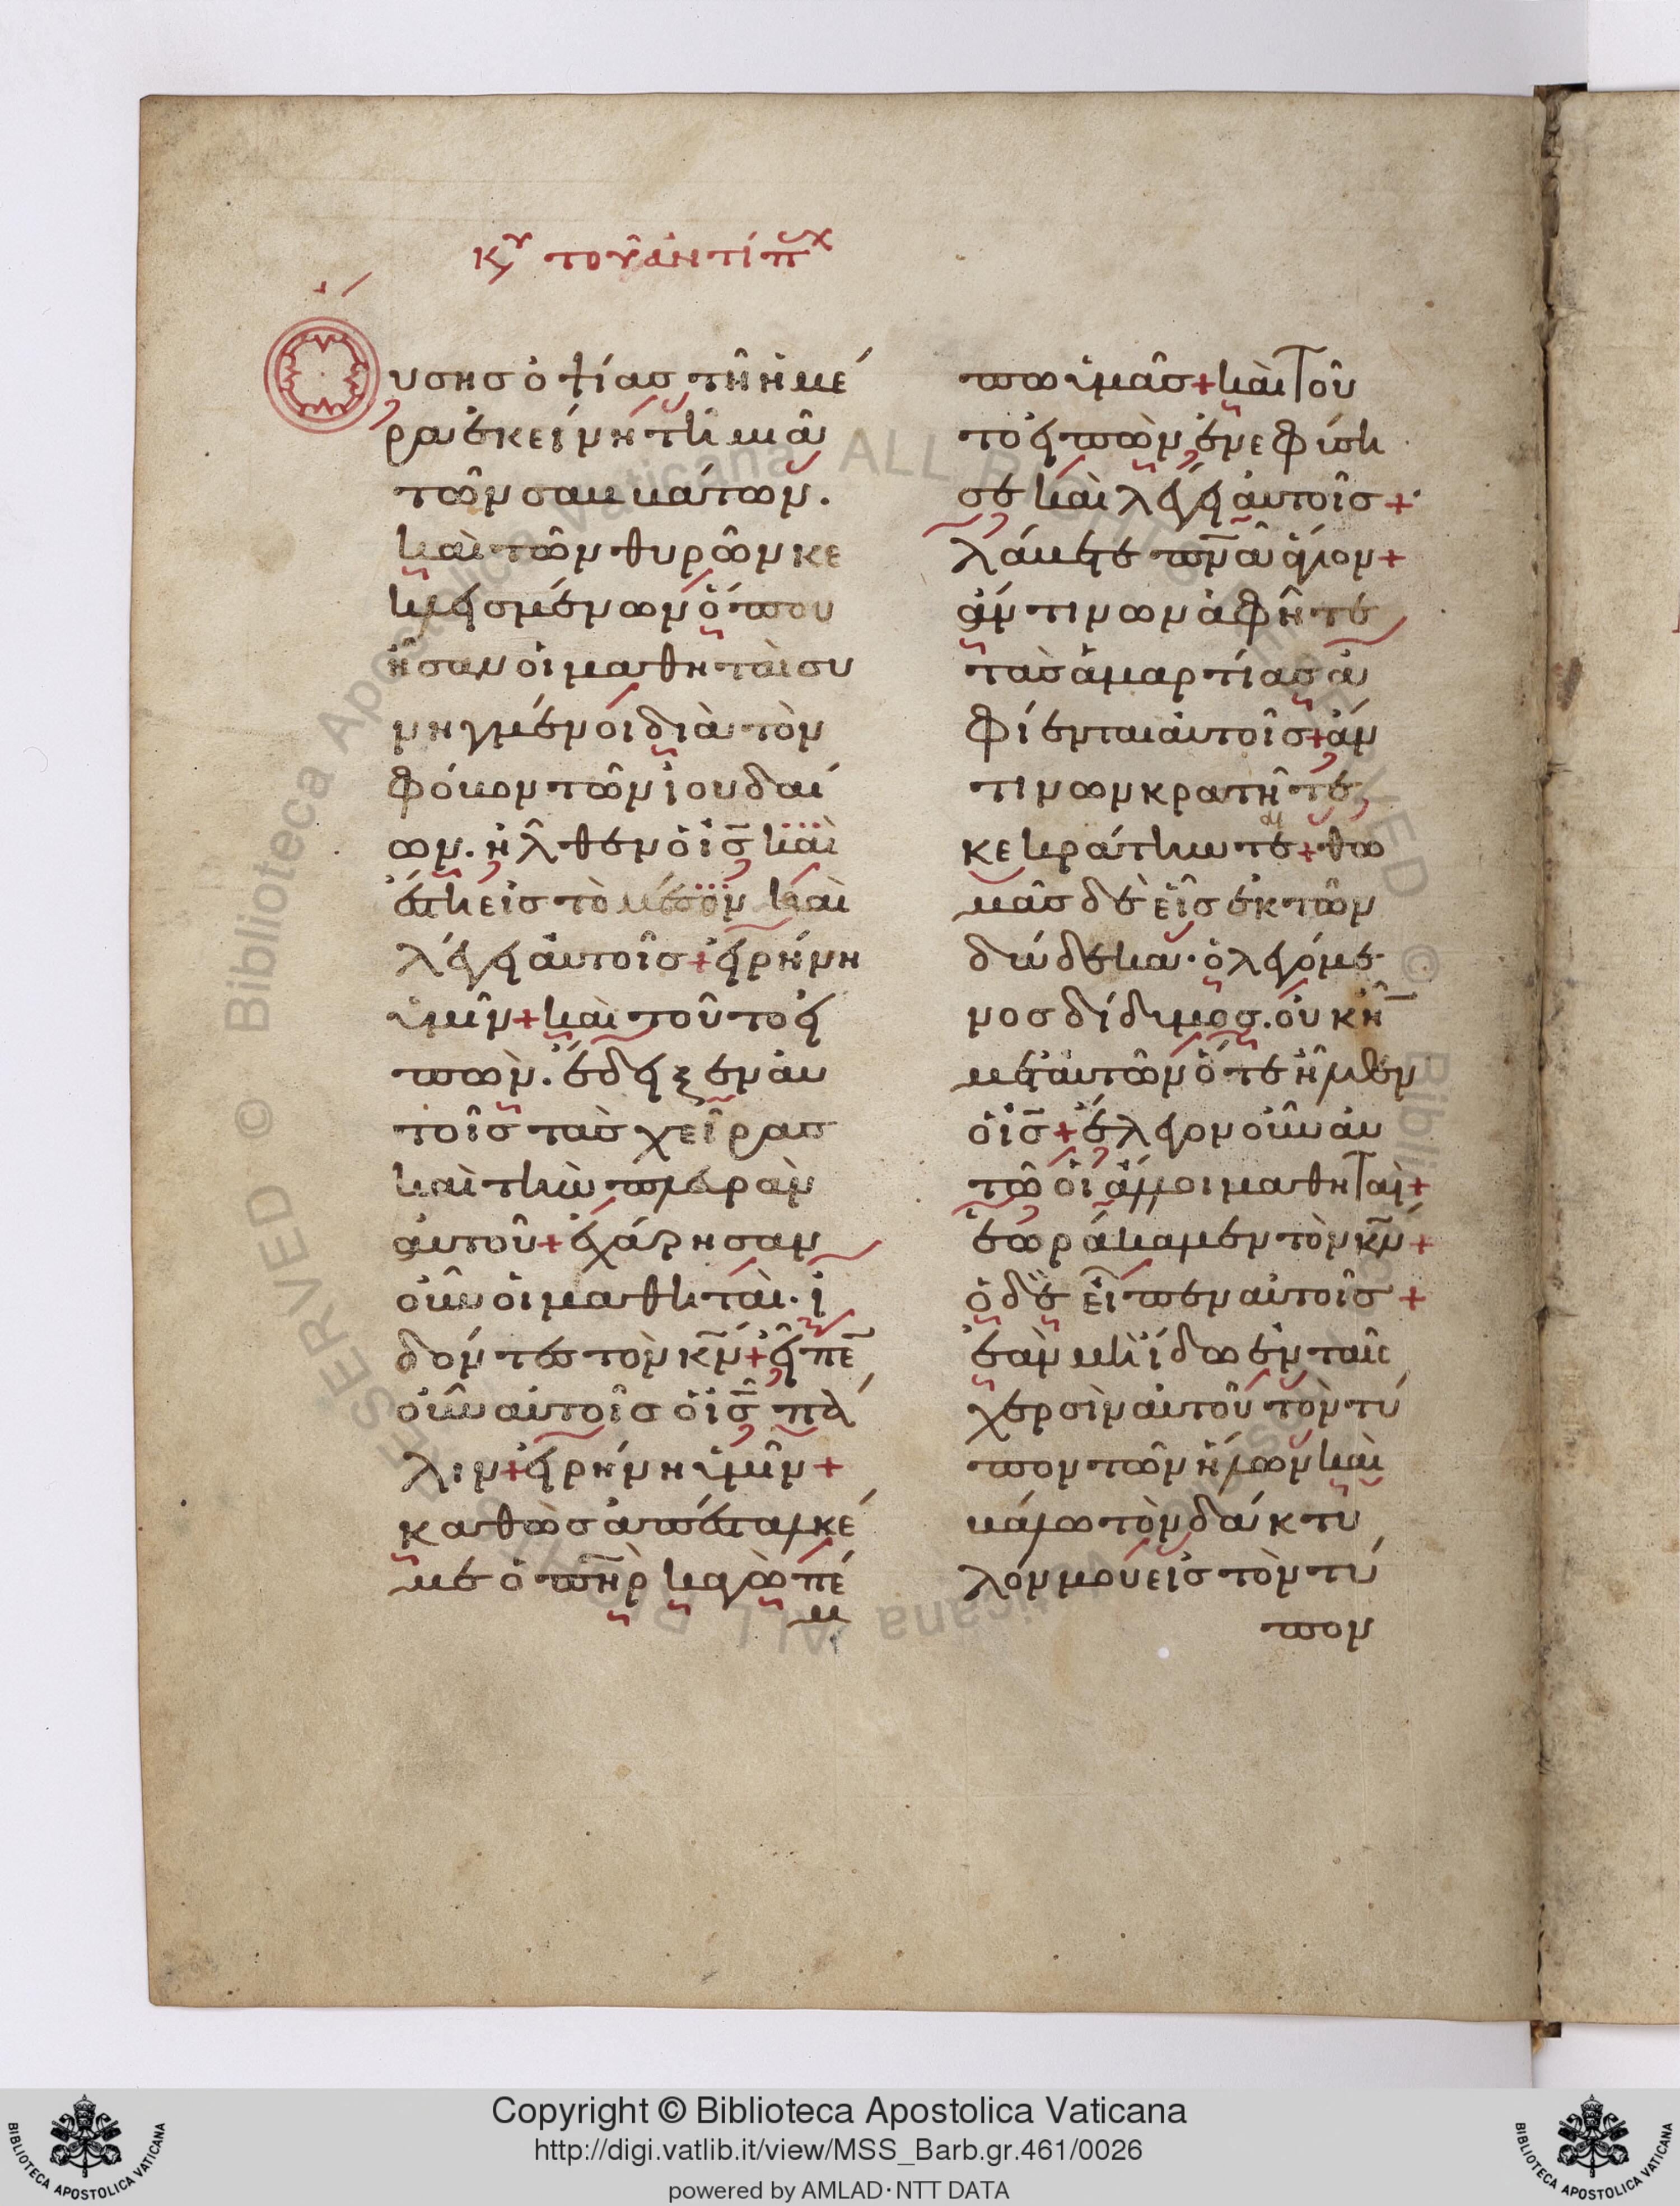 κυ τοῦ ἀντίπχ
Ουσης ὀψίας τῆ ἡμέ
ρα ἐκείνη τῆ μιᾶ
τῶν σαββάτων.
καὶ τῶν θυρῶν κε
κλεισμένων ὅπου
ἦσαν οἱ μαθηταὶ συ
νηγμένοι διὰ τὸν
φόβον τῶν ἰουδαί
ων. ἦλθεν ὁ ἰς̅ καὶ
ἔστη εἰς τὸ μέσον καὶ
λέγει αὐτοῖς + εἰρήνη
ὑμῖν + καὶ τοῦτο εἰ
πὼν. ἔδειξεν αὐ
τοῖς τὰς χεῖρας
καὶ τὴν πλευρὰν
αὐτοῦ + ἐχάρησαν
οὖν οἱ μαθηταὶ. ἰ
δόντες τὸν κ̅ν̅ + εἶπε̅
οὖν αὐτοῖς ὁ ἰς̅ πά
λιν + εἰρήνη ὑμῖν +
καθὼς ἀπέσταλκέ
με ὁ π̅η̅ρ̅ κἀγὼ πέ
μ
πω ὑμᾶς + καὶ τοῦ
το εἰπὼν ἐνεφύση
σε καὶ λέγει αὐτοῖς +
λάβετε π̅ν̅α̅ ἅγιον +
ἄν τινων ἀφῆτε
τὰς ἁμαρτίας ἀ
φίενται αὐτοῖς + ἄν
τινων κρατῆτε
κεκράτηνται + θω
μᾶς δὲ εἷς ἐκ τῶν
δώδεκα. ὁ λεγόμε
νος δίδυμος. οὐκ ἦ̅
μετ αὐτῶν ὅτε ἦλθεν
ὁ ἰς̅ + ἔλεγον οὖν αὐ
τῶ οἱ ἄλλοι μαθηταὶ +
ἑωράκαμεν τὸν κ̅ν̅ +
ὁ δὲ εἶπεν αὐτοῖς +
ἐὰν μὴ ἴδω ἐν ταῖς
χερσὶν αὐτοῦ τὸν τύ
πον τῶν ἥλων καὶ
βάλω τὸν δάκτυ
λόν μου εἰς τὸν τύ
πον
Copyright © Biblioteca Apostolica Vaticana
http://digi.vatlib.it/view/MSS_Barb.gr.461/0026
powered by AMLAD·NTT DATA